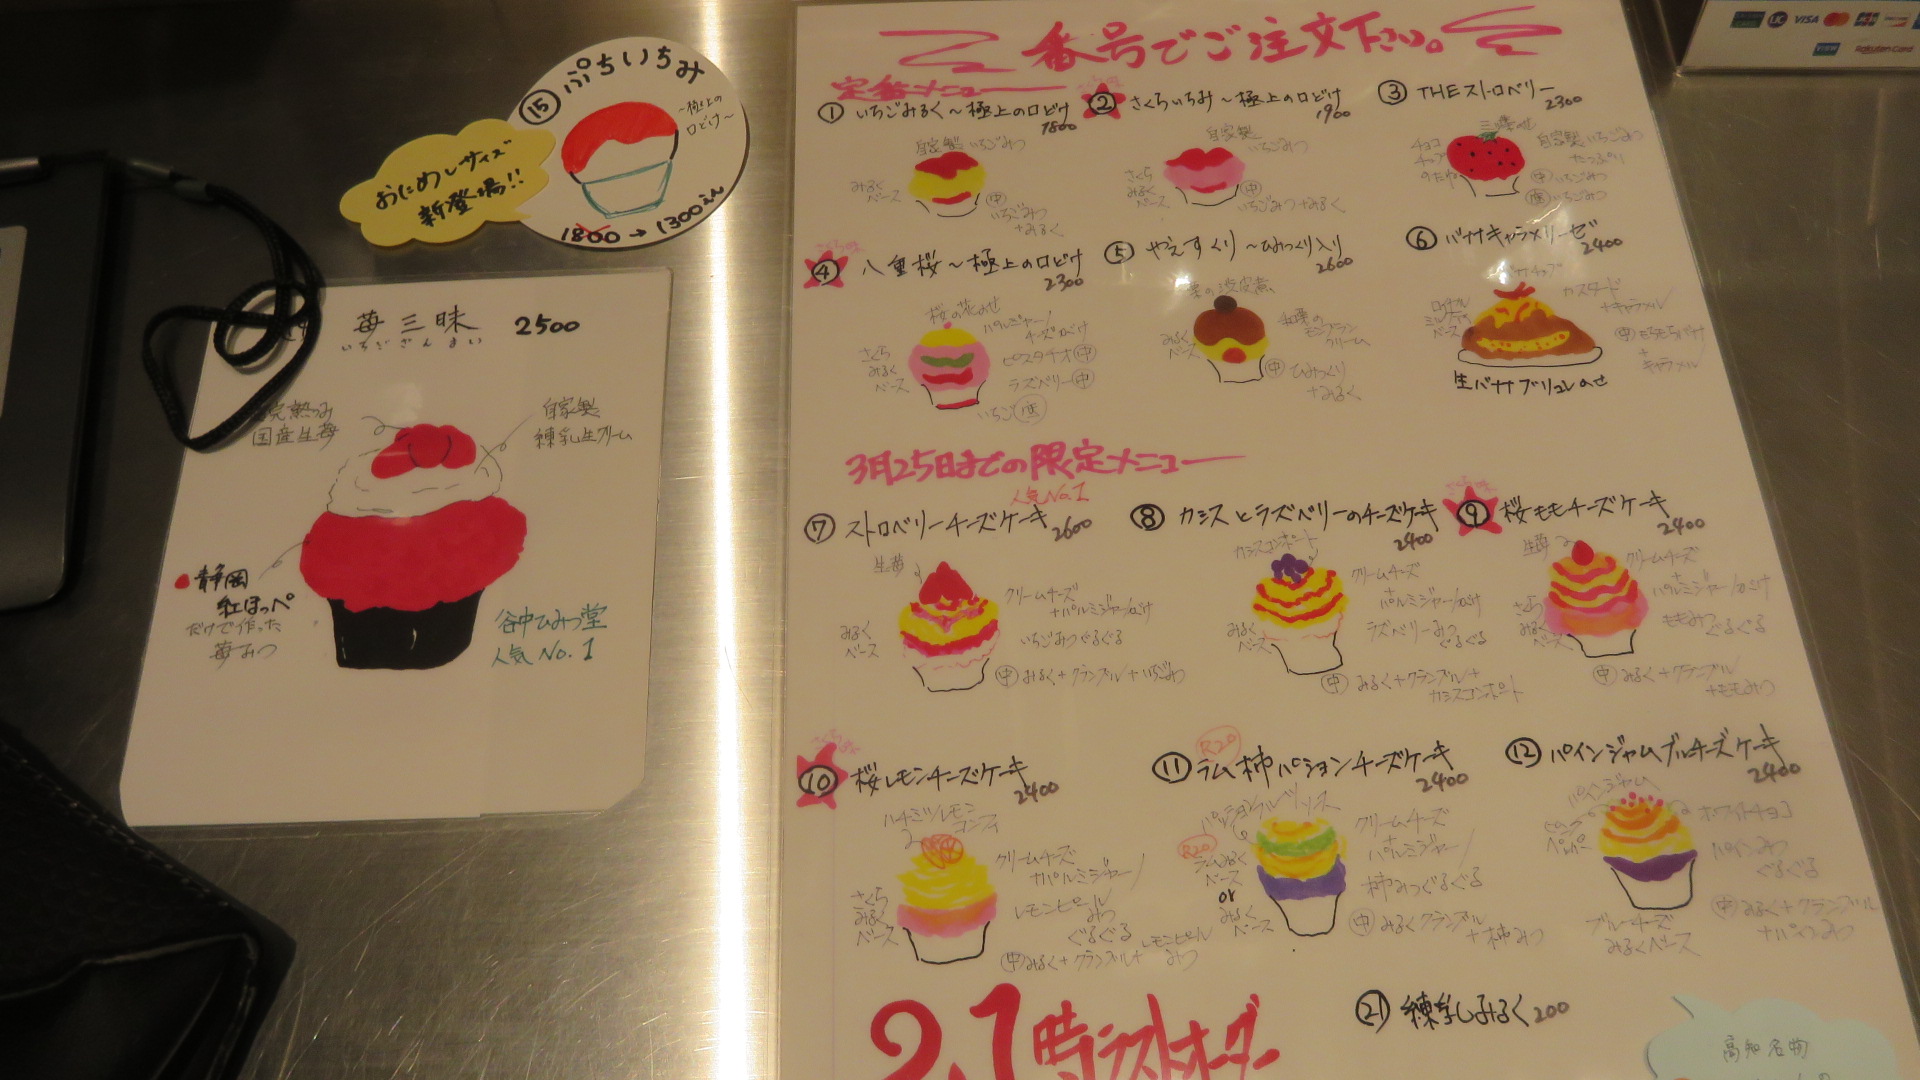 番号でご注文下さい。
定番メニュー
① いちごみるく〜極上の口どけ
1800
自家製いちごみつ
みるく
ベース
中
いちごみつ
+みるく
② さくらいちみ〜極上の口どけ
1900
自家製
いちごみつ
さくら
みるく
ベース
中
いちごみつ+みるく
③ THEストロベリー
2300
チョコ
チップ
自家製いちごみつ
たっぷり
中 いちごみつ
底 いちごみつ
④ 八重桜〜極上の口どけ
2300
桜の花のせ
パルミジャーノ
チーズがけ
さくら
みるく
ベース
ピスタチオ 中
ラズベリー 中
いちご 底
⑤ やえすくり〜ひみつくり入り
2600
栗の渋皮煮
みるく
ベース
モンブラン
クリーム
中 ひみつくり
+みるく
⑥ バナナキャラメリーゼ
2400
バナナチップ
カスタード
+キャラメル
ロイヤル
ミルクティ
ベース
中 もちもちバナナ
+
キャラメル
生バナナブリュレのせ
3月25日までの限定メニュー
人気No.1
⑦ ストロベリーチーズケーキ
2600
生苺
クリームチーズ
+パルミジャーノがけ
みるく
ベース
いちごみつぐるぐる
中 みるく+クランブル+いちごみつ
⑧ カシスとラズベリーのチーズケーキ
2400
カシスコンポート
クリームチーズ
+
パルミジャーノがけ
みるく
ベース
ラズベリーみつ
ぐるぐる
中 みるく+クランブル+
カシスコンポート
⑨ 桜ももチーズケーキ
2400
生苺
クリームチーズ
+
パルミジャーノがけ
さくら
みるく
ベース
ももみつ
ぐるぐる
中 みるく+クランブル
+ももみつ
⑩ 桜レモンチーズケーキ
2400
ハチミツレモン
コンフィ
クリームチーズ
+パルミジャーノ
さくら
みるく
ベース
レモンピール
みつ
ぐるぐる
中 みるく+クランブル+レモンピール
みつ
⑪ ラム柿パションチーズケーキ
R20
2400
クリームチーズ
+
パルミジャーノ
R20
ラムみるく
ベース
or
みるく
ベース
柿みつぐるぐる
中 みるくクランブル
+柿みつ
⑫ パインジャムブルーチーズケーキ
2400
パインジャム
ピンク
ペッパー
ホワイトチョコ
パインみつ
ぐるぐる
ブルーチーズ
みるくベース
中 みるく+クランブル
+パインみつ
21時ラストオーダー
㉑ 練乳しみるく 200
高知名物
⑮ ぷちいちみ
〜極上の
口どけ〜
おためしサイズ
新登場!!
1800→1300えん
苺三昧 2500
いちござんまい
完熟つみ
国産生苺
自家製
練乳生クリーム
静岡
紅ほっぺ
だけで作った
苺みつ
谷中ひみつ堂
人気No.1
UC VISA JCB
VIEW Rakuten Card